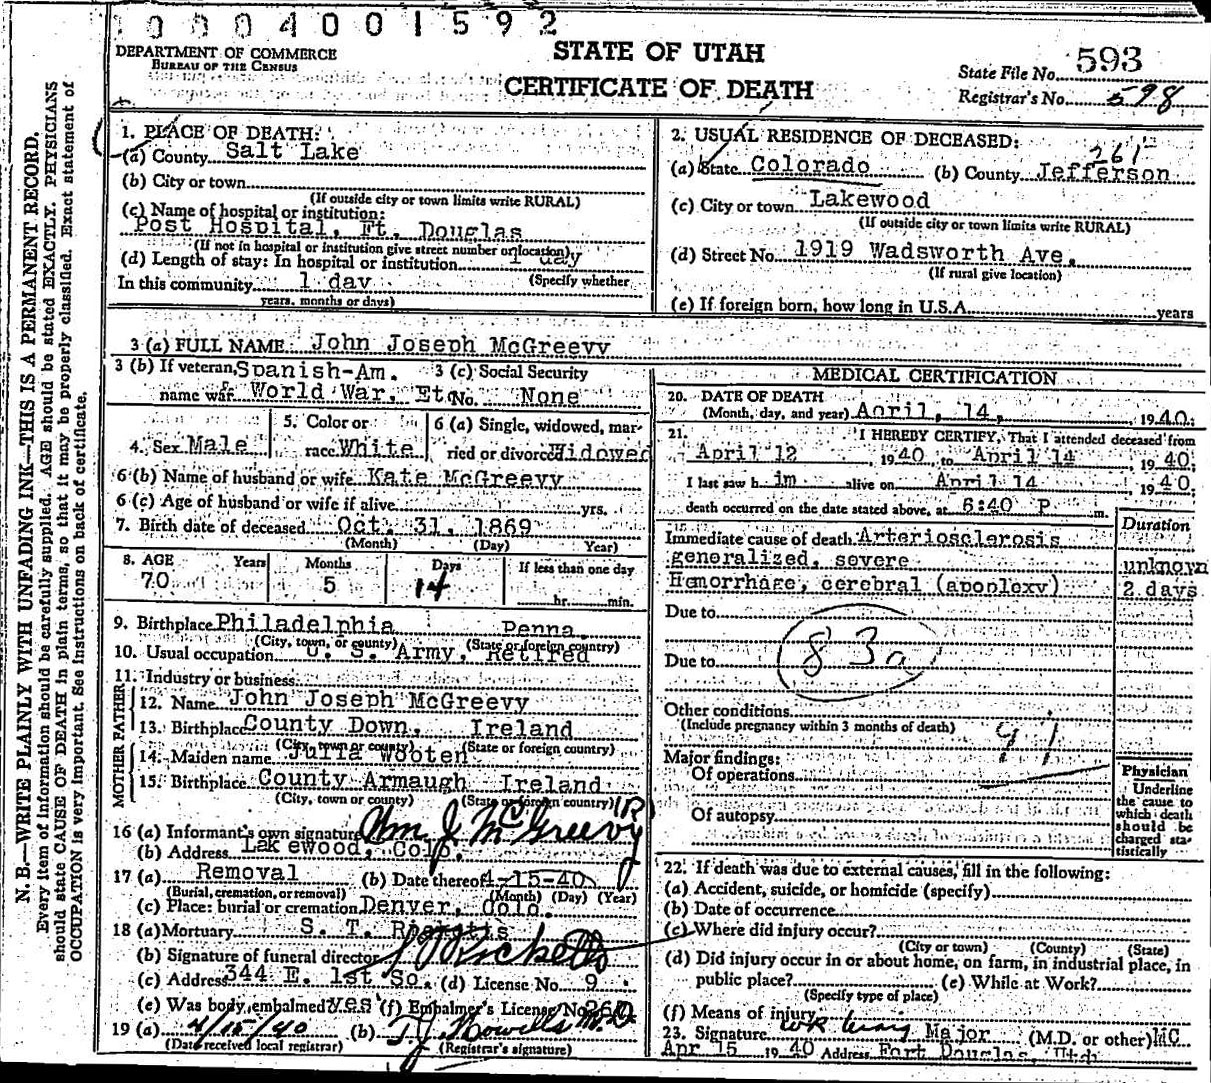 1 0 0 0 4 0 0 1 5 9 2
DEPARTMENT OF COMMERCE
BUREAU OF THE CENSUS
STATE OF UTAH
CERTIFICATE OF DEATH
State File No. 593
Registrar's No. 598
N. B.—WRITE PLAINLY WITH UNFADING INK—THIS IS A PERMANENT RECORD.
Every item of information should be carefully supplied. AGE should be stated EXACTLY. PHYSICIANS
should state CAUSE OF DEATH in plain terms, so that it may be properly classified. Exact statement of
OCCUPATION is very important. See instructions on back of certificate.
1. PLACE OF DEATH:
(a) County Salt Lake
(b) City or town
(If outside city or town limits write RURAL)
(c) Name of hospital or institution:
Post Hospital, Ft. Douglas
(If not in hospital or institution give street number or location)
(d) Length of stay: In hospital or institution 1 day
(Specify whether
In this community 1 day
years, months or days)
2. USUAL RESIDENCE OF DECEASED:
261
(a) State Colorado (b) County Jefferson
(c) City or town Lakewood
(If outside city or town limits write RURAL)
(d) Street No. 1919 Wadsworth Ave.
(If rural give location)
(e) If foreign born, how long in U.S.A. years
3 (a) FULL NAME John Joseph McGreevy
3 (b) If veteran, Spanish-Am. 3 (c) Social Security
name war & World War, Et No. None
4. Sex Male
5. Color or
race White
6 (a) Single, widowed, mar-
ried or divorced Widowed
6 (b) Name of husband or wife Kate McGreevy
6 (c) Age of husband or wife if alive yrs.
7. Birth date of deceased Oct. 31, 1869
(Month) (Day) Year)
8. AGE Years Months Days If less than one day
70 5 14 hr. min.
9. Birthplace Philadelphia Penna.
(City, town, or county) (State or foreign country)
10. Usual occupation U. S. Army, Retired
11. Industry or business
FATHER
12. Name John Joseph McGreevy
13. Birthplace County Down, Ireland
(City, town or county) (State or foreign country)
MOTHER
14. Maiden name Julia Wooten
15. Birthplace County Armaugh Ireland
(City, town or county) (State or foreign country)
16 (a) Informant's own signature Wm J. McGreevy (R)
(b) Address Lakewood, Colo.
17 (a) Removal (b) Date thereof 4-15-40
(Burial, cremation, or removal) (Month) (Day) (Year)
(c) Place: burial or cremation Denver, Colo.
18 (a) Mortuary S. T.
(b) Signature of funeral director
(c) Address 344 E. 1st So. (d) License No. 9
(e) Was body embalmed? yes (f) Embalmer's License No. 260
19 (a) 4/15/40 (b) T. J. Howells M.D.
(Date received local registrar) (Registrar's signature)
MEDICAL CERTIFICATION
20. DATE OF DEATH
(Month, day, and year) April, 14, 1940.
21. I HEREBY CERTIFY, That I attended deceased from
April 12, 1940, to April 14, 1940;
I last saw him alive on April 14, 1940;
death occurred on the date stated above, at 6:40 P m.
Duration
Immediate cause of death Arteriosclerosis
generalized, severe unknown
Hemorrhage, cerebral (apoplexy) 2 days
Due to
83a
Due to
Other conditions
(Include pregnancy within 3 months of death)
91
Major findings:
Of operations
Of autopsy
Physician
Underline
the cause to
which death
should be
charged sta-
tistically
22. If death was due to external causes, fill in the following:
(a) Accident, suicide, or homicide (specify)
(b) Date of occurrence
(c) Where did injury occur?
(City or town) (County) (State)
(d) Did injury occur in or about home, on farm, in industrial place, in
public place? (e) While at Work?
(Specify type of place)
(f) Means of injury
23. Signature WR Craig Major (M.D. or other) MC
Apr 15 1940 Address Fort Douglas, Utah